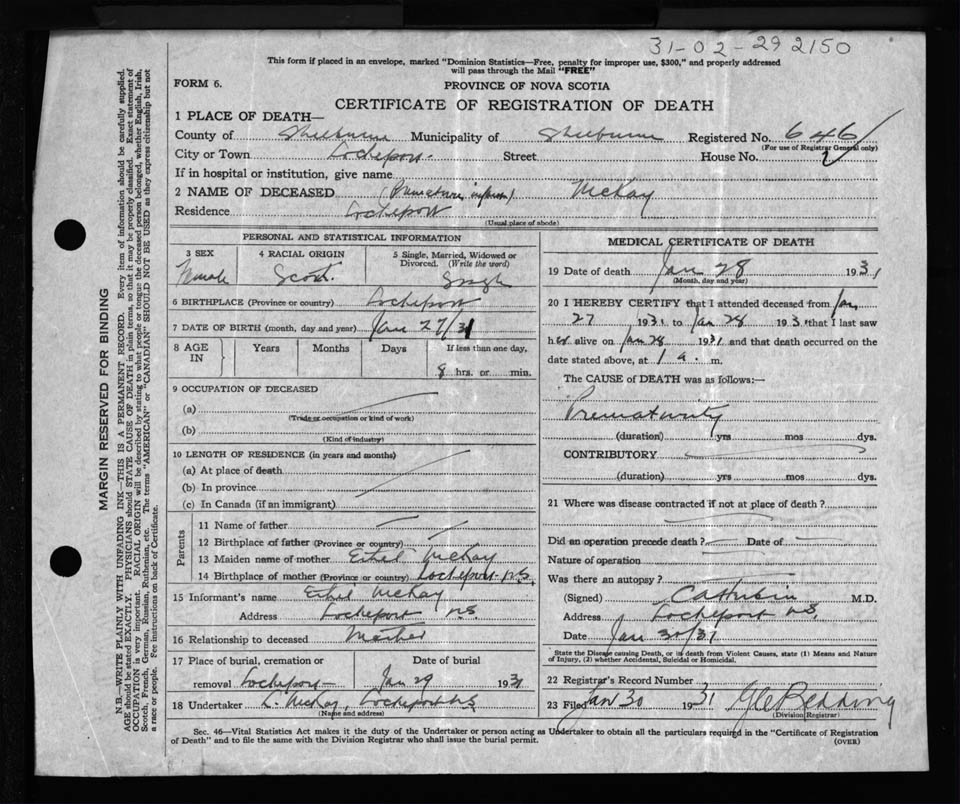 31-02-29 2150
This form if placed in an envelope, marked "Dominion Statistics—Free, penalty for improper use, $300," and properly addressed
will pass through the Mail "FREE"
FORM 6.
PROVINCE OF NOVA SCOTIA
CERTIFICATE OF REGISTRATION OF DEATH
1 PLACE OF DEATH—
County of Shelburne Municipality of Shelburne Registered No. 646
(For use of Registrar General only)
City or Town Lockeport Street House No.
If in hospital or institution, give name
2 NAME OF DECEASED (Premature infant) McKay
Residence Lockeport
(Usual place of abode)
PERSONAL AND STATISTICAL INFORMATION
3 SEX 4 RACIAL ORIGIN 5 Single, Married, Widowed or
Divorced. (Write the word)
Scotch Single
6 BIRTHPLACE (Province or country) Lockeport
7 DATE OF BIRTH (month, day and year) Jan 27/31
8 AGE IN Years Months Days If less than one day,
8 hrs. or min.
9 OCCUPATION OF DECEASED
(a)
(Trade or occupation or kind of work)
(b)
(Kind of industry)
10 LENGTH OF RESIDENCE (in years and months)
(a) At place of death
(b) In province
(c) In Canada (if an immigrant)
Parents
11 Name of father
12 Birthplace of father (Province or country)
13 Maiden name of mother Ethel McKay
14 Birthplace of mother (Province or country) Lockeport N.S.
15 Informant's name Ethel McKay
Address Lockeport N.S.
16 Relationship to deceased Mother
17 Place of burial, cremation or Date of burial
removal Lockeport Jan 29 1931
18 Undertaker L. McKay, Lockeport N.S.
(Name and address)
MEDICAL CERTIFICATE OF DEATH
19 Date of death Jan 28 1931
(Month, day and year)
20 I HEREBY CERTIFY that I attended deceased from Jan
27 1931 to Jan 28 1931 that I last saw
her alive on Jan 28 1931 and that death occurred on the
date stated above, at 1 a. m.
The CAUSE OF DEATH was as follows:—
Prematurity
(duration) yrs mos dys.
CONTRIBUTORY
(duration) yrs mos dys.
21 Where was disease contracted if not at place of death?
Did an operation precede death? Date of
Nature of operation
Was there an autopsy?
(Signed) M.D.
Address Lockeport N.S.
Date Jan 30/31
State the Disease causing Death, or in death from Violent Causes, state (1) Means and Nature
of Injury, (2) whether Accidental, Suicidal or Homicidal.
22 Registrar's Record Number
23 Filed Jan 30 1931 Redding
(Division Registrar)
Sec. 46—Vital Statistics Act makes it the duty of the Undertaker or person acting as Undertaker to obtain all the particulars required in the "Certificate of Registration
of Death" and to file the same with the Division Registrar who shall issue the burial permit.
(OVER)
MARGIN RESERVED FOR BINDING
N.B.—WRITE PLAINLY WITH UNFADING INK—THIS IS A PERMANENT RECORD. Every item of information should be carefully supplied.
AGE should be stated EXACTLY. PHYSICIANS should STATE CAUSE OF DEATH in plain terms, so that it may be properly classified. Exact statement of
OCCUPATION is very important. RACIAL ORIGIN will be described by stating to what people or tongue the deceased person belonged, whether English, Irish,
Scotch, French, German, Russian, Ruthenian, etc. The terms "AMERICAN" or "CANADIAN" SHOULD NOT BE USED as they express citizenship but not
a race or people. See instructions on back of Certificate.